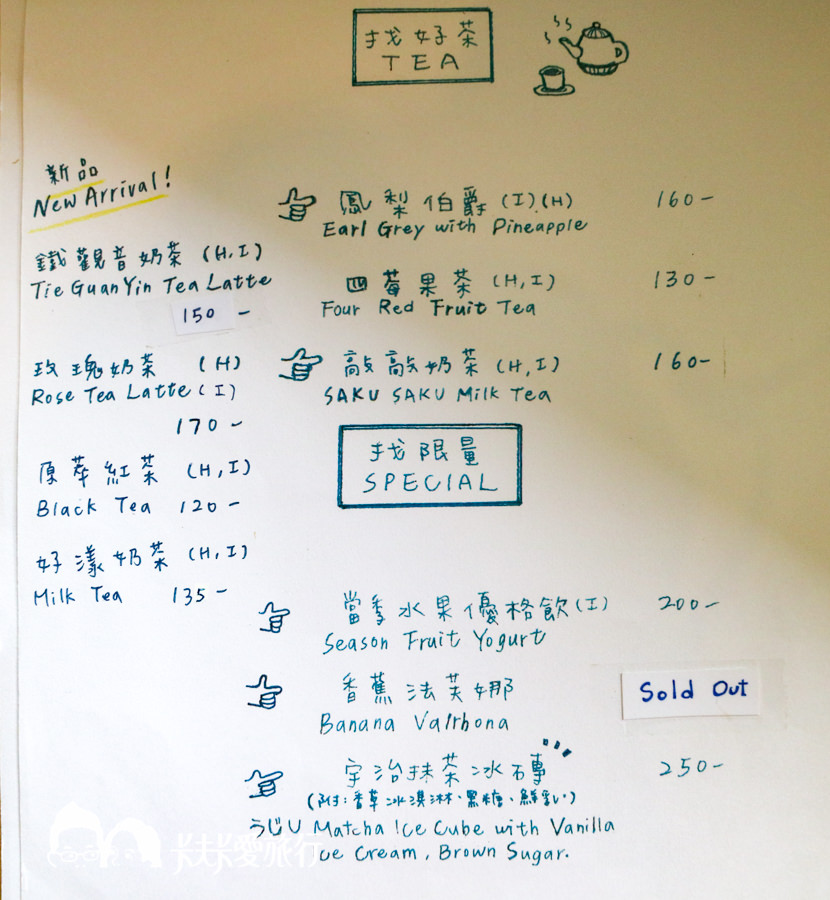 找好茶
TEA
新品
New Arrival!
鐵觀音奶茶 (H,I)
Tie GuanYin Tea Latte
150 -
玫瑰奶茶 (H)
Rose Tea Latte (I)
170 -
原萃紅茶 (H,I)
Black Tea 120 -
好漾奶茶 (H,I)
Milk Tea 135 -
鳳梨伯爵 (I)(H) 160 -
Earl Grey with Pineapple
四莓果茶 (H,I) 130 -
Four Red Fruit Tea
敲敲奶茶 (H,I) 160 -
SAKU SAKU Milk Tea
找限量
SPECIAL
當季水果優格飲 (I) 200 -
Season Fruit Yogurt
香蕉法芙娜 Sold Out
Banana Valrhona
宇治抹茶冰磚 250 -
(附:香草冰淇淋、黑糖、鮮乳)
うじU Matcha Ice Cube with Vanilla
Ice Cream, Brown Sugar.
卡夫卡愛旅行